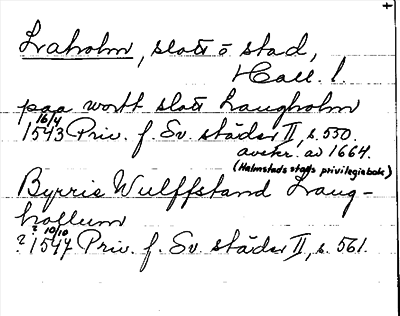 Laholm, slott o stad,
Hall. l.
paa wortt slott Laugholm
16/4
1543 Priv. f. Sv. städer II, s. 550.
avskr. av 1664.
(Halmstads stads privilegiebok)
Byrris Wulffstand Laug-
hollum
? 10/10
? 1547 Priv. f. Sv. städer II, s. 561.